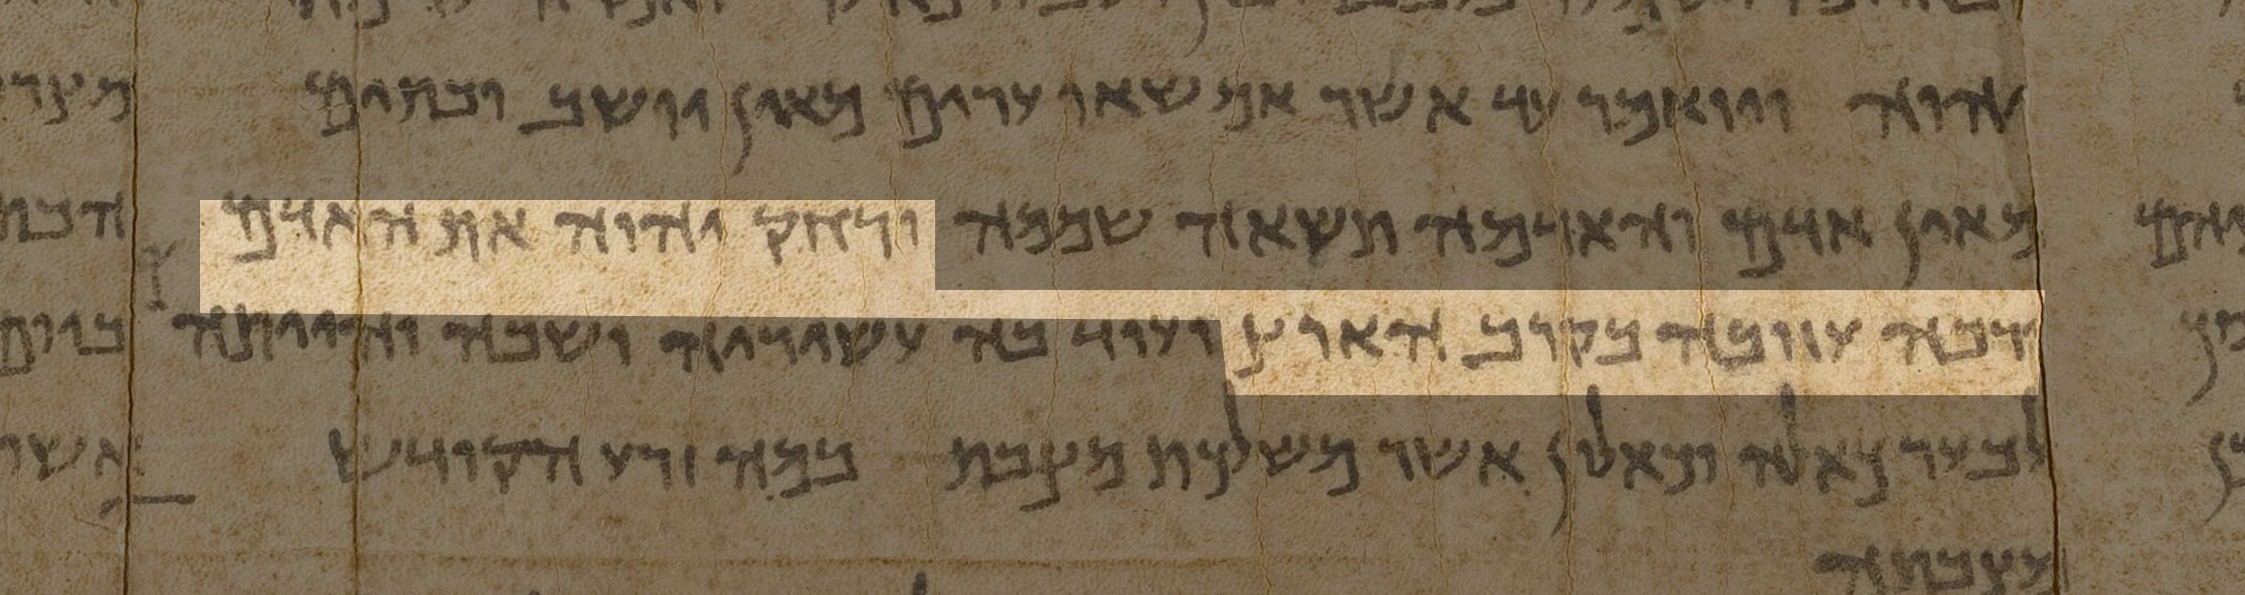 יהוה ויואמר עד אשר אם שאו ערים מאין יושב ובתים
מאין אדם והאדמה תשאה שממה ורחק יהוה את האדם
ורבה עזובה בקרב הארץ ועוד בה עשיריה ושבה והייתה
לבער כאלה וכאלון אשר משלכת מצבת במה זרע הקודש
מצבתה